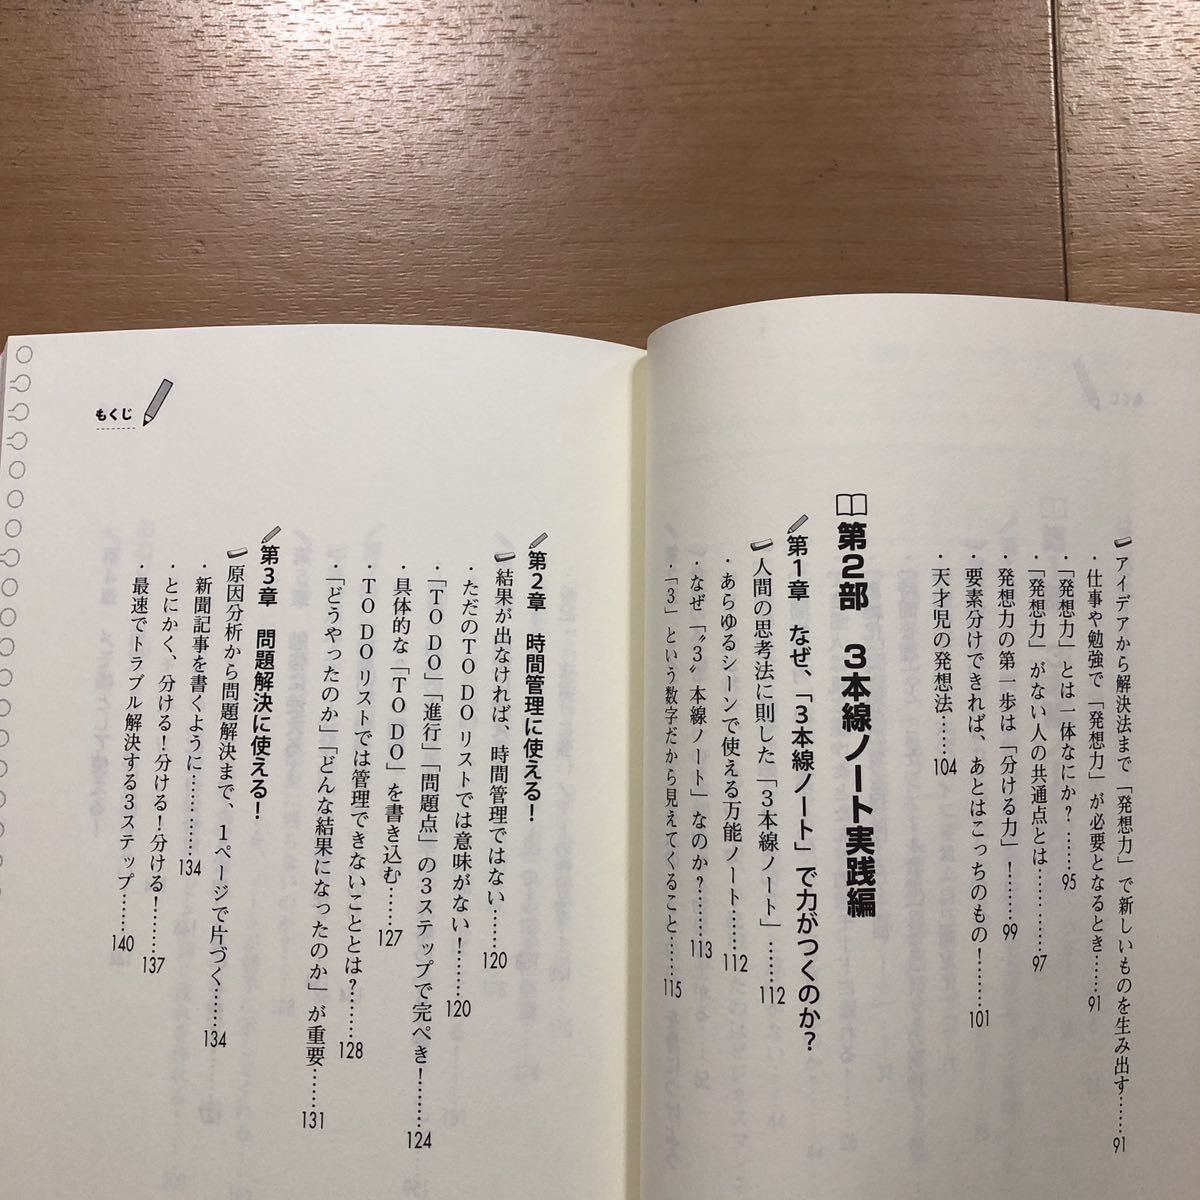 アイデアから解決法まで「発想力」で新しいものを生み出す……91
・仕事や勉強で「発想力」が必要となるとき……91
・「発想力」とは一体なにか?……95
・「発想力」がない人の共通点とは………97
・発想力の第一歩は「分ける力」!……99
・要素分けできれば、あとはこっちのもの!……101
・天才児の発想法……104
第2部 3本線ノート実践編
第1章 なぜ、「3本線ノート」で力がつくのか?
人間の思考法に則した「3本線ノート」……112
・あらゆるシーンで使える万能ノート……112
・なぜ「〝3〟本線ノート」なのか?……113
・「3」という数字だから見えてくること……115
もくじ
第2章 時間管理に使える!
結果が出なければ、時間管理ではない……120
・ただのTO DOリストでは意味がない!……120
・「TO DO」「進行」「問題点」の3ステップで完ぺき!……124
・具体的な「TO DO」を書き込む……127
・TO DOリストでは管理できないこととは?……128
・「どうやったのか」「どんな結果になったのか」が重要……131
第3章 問題解決に使える!
原因分析から問題解決まで、1ページで片づく……134
・新聞記事を書くように……134
・とにかく、分ける!分ける!分ける!……137
・最速でトラブル解決する3ステップ……140